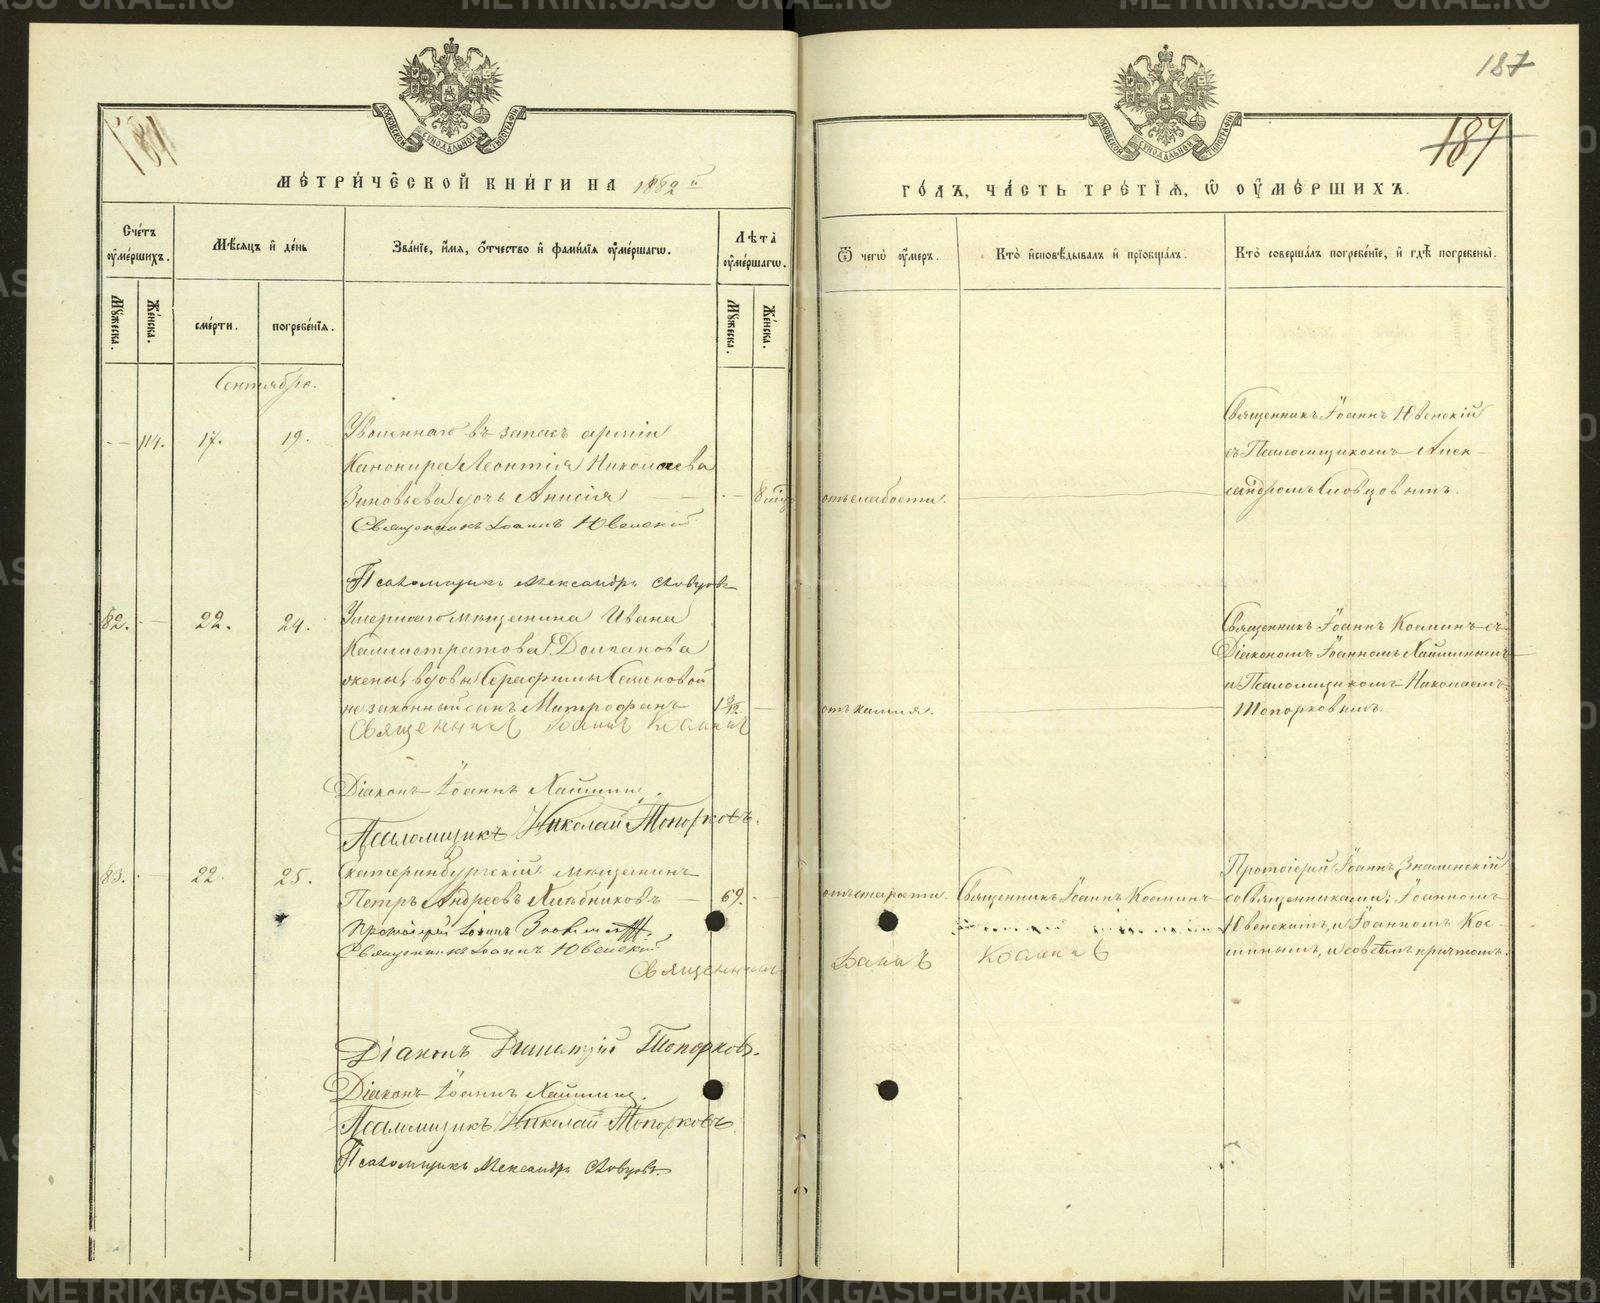 187
187
187
МОСКОВСКОЙ СѴНОДАЛЬНОЙ ТИПОГРАФІИ
МОСКОВСКОЙ СѴНОДАЛЬНОЙ ТИПОГРАФІИ
МЕТРИЧЕСКОЙ КНИГИ НА 1882й
ГОДЪ, ЧАСТЬ ТРЕТІЯ, Ѡ ОУМЕРШИХЪ.
Счетъ оумершихъ.
Мѣсяцъ и день
Званіе, имя, отчество и фамилія оумершагѡ.
Лѣта оумершагѡ.
Ѿ чегѡ оумеръ.
Кто исповѣдывалъ и пріобщалъ.
Кто совершалъ погребеніе, и гдѣ погребены.
Мужеска.
Женска.
смерти.
погребенія.
Мужеска.
Женска.
Сентябрь.
114. 17. 19.
Уволеннаго въ запасъ арміи
Канонира Леонтія Николаева
Зиновьева дочь Анисія
8 мѣс.
отъ слабости.
Священникъ Іоаннъ Ювенскій
съ Псаломщикомъ Алек-
сандромъ Словцовымъ.
Священникъ Іоаннъ Ювенскій
Псаломщикъ Александръ Словцовъ
82. 22. 24.
Умершаго мѣщанина Ивана
Каллистратова Долганова
жены, вдовы Серафимы Семеновой
незаконный сынъ Митрофанъ
отъ кашля.
Священникъ Іоаннъ Косминъ съ
Діакономъ Іоанномъ Хаминымъ
и Псаломщикомъ Николаемъ
Топорковымъ.
Священникъ Іоаннъ Косминъ
Діаконъ Іоаннъ
Псаломщикъ Николай Топорковъ.
83. 22. 25.
Екатеринбургскій мѣщанинъ
Петръ Андреевъ Хлѣбниковъ
69.
отъ старости.
Священникъ Іоаннъ Косминъ
Протоіерей Іоаннъ Знаменскій
со священниками: Іоанномъ
Ювенскимъ, и Іоанномъ Кос-
минымъ, и со всѣмъ причтомъ.
Протоіерей Іоаннъ Знаменскій
Священникъ Іоаннъ Ювенскій
Священникъ Іоаннъ Косминъ
Діаконъ Димитрій Топорковъ.
Діаконъ Іоаннъ
Псаломщикъ Николай Топорковъ
Псаломщикъ Александръ Словцовъ
METRIKI.GASO-URAL.RU